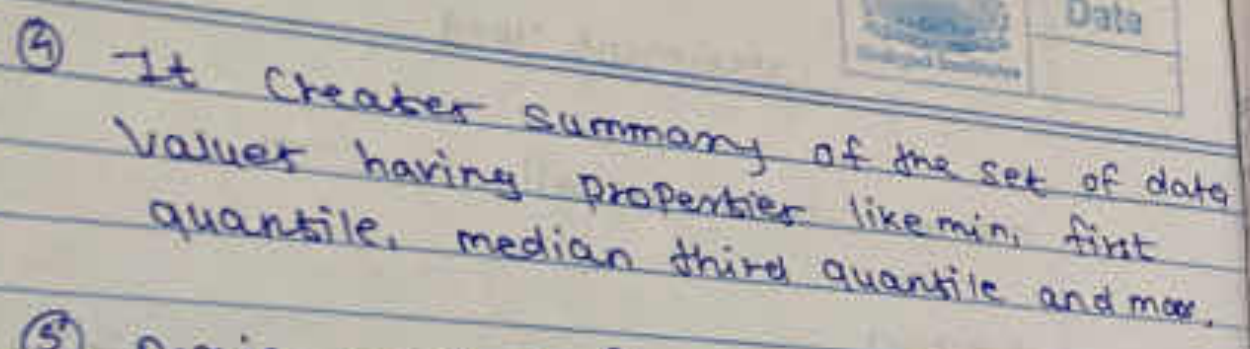 Data
④ It Creates summary of the set of data
values having properties like min, first
quantile, median third quantile and max.
⑤